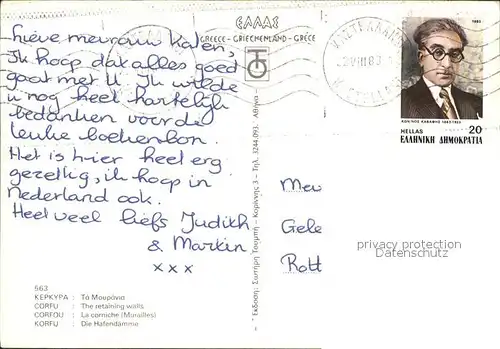 ΕΛΛΑΣ
GREECE - GRIECHENLAND - GRÈCE
Lieve mevrouw Kalen,
Ik hoop dat alles goed
gaat met U. Ik wilde
u nog heel hartelijk
bedanken voor de
leuke boekenbon.
Het is hier heel erg
gezellig, ik hoop in
Nederland ook.
Heel veel liefs Judith
& Martin
x x x
563
ΚΕΡΚΥΡΑ : Τά Μουράγια
CORFU : The retaining walls
CORFOU : La corniche (Murailles)
KORFU : Die Hafendämme
Ἔκδοση: Σωτήρη Τουμπή - Κορίννης 3 - Τηλ. 3244.093. Ἀθήνα
1983
ΚΩΝ/ΝΟΣ ΚΑΒΑΦΗΣ 1863-1933
HELLAS 20
ΕΛΛΗΝΙΚΗ ΔΗΜΟΚΡΑΤΙΑ
Mev
Gele
Rott
privacy protection
Datenschutz